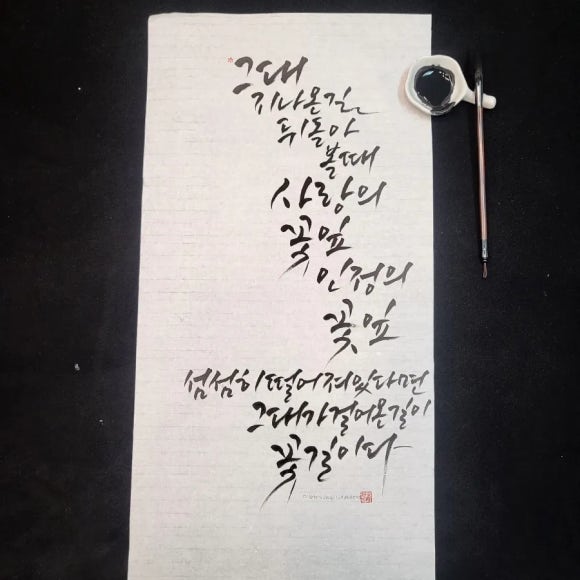 그대
지나온길
뒤돌아
볼때
사랑의
꽃잎
인정의
꽃잎
섬섬히떨어져있다면
그대가걸어온길이
꽃길이다